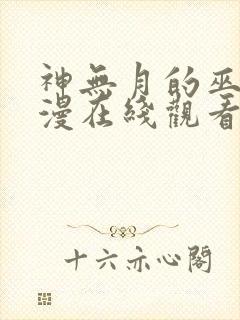 神無月的巫
漫在綫觀看
十六亦心閣